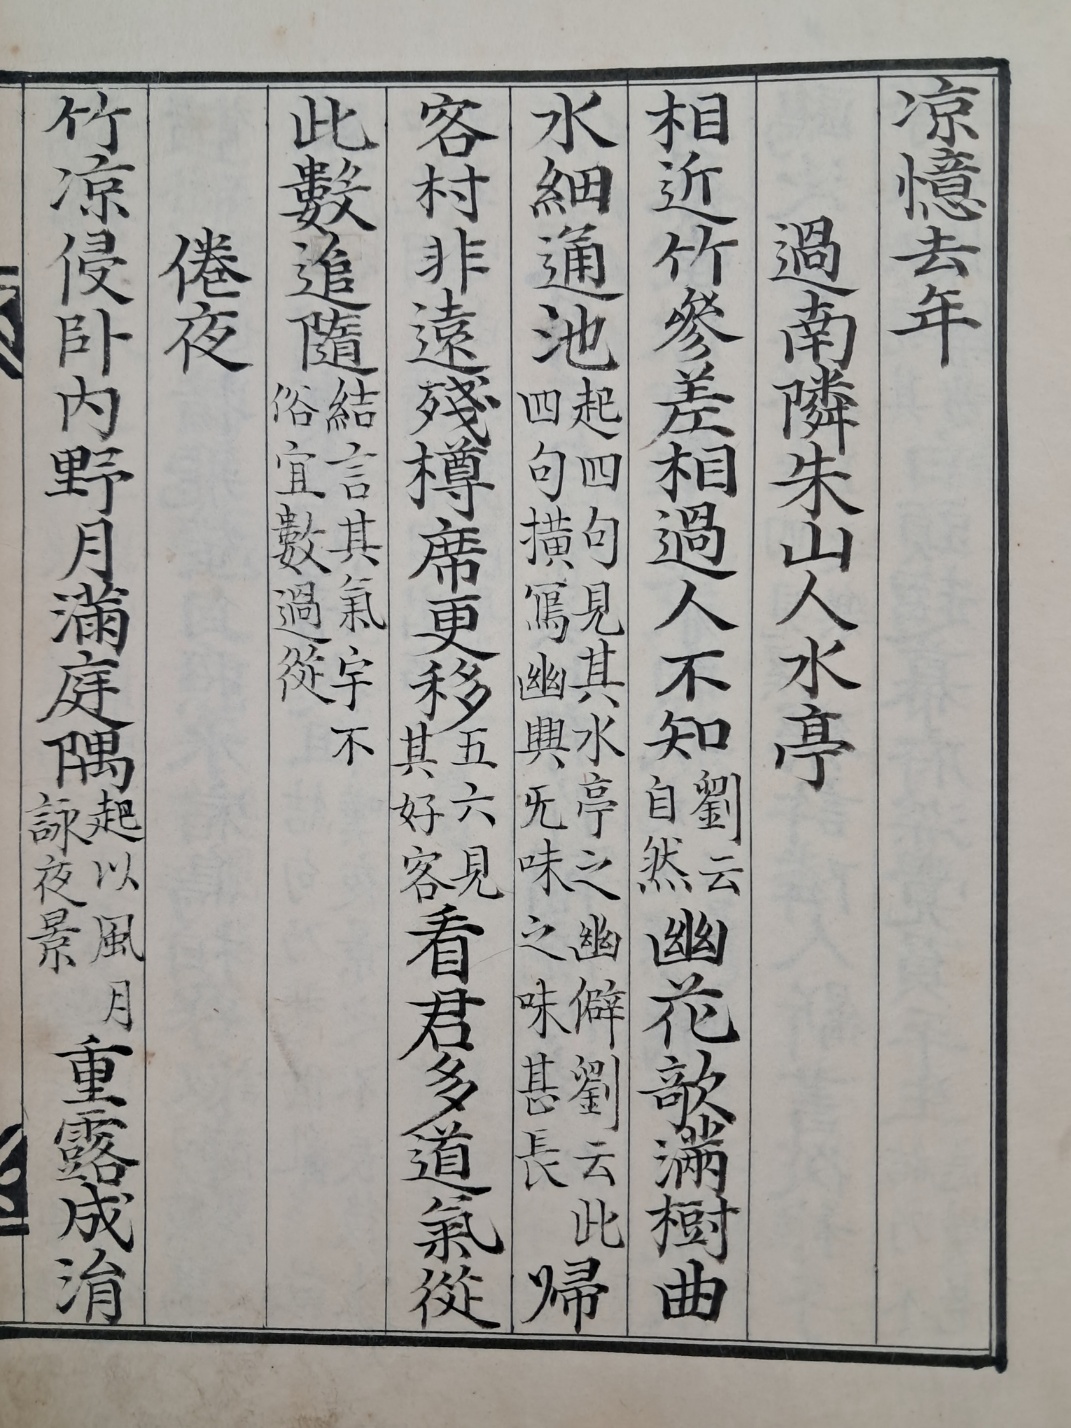 凉憶去年
過南隣朱山人水亭
相近竹參差相過人不知劉云自然幽花欹滿樹曲
水細通池起四句見其水亭之幽僻劉云此四句摸寫幽興旡味之味甚長歸
客村非遠殘樽席更移五六見其好客看君多道氣從
此數追隨結言其氣宇不俗宜數過從
倦夜
竹凉侵卧内野月滿庭隅起以風月詠夜景重露成涓